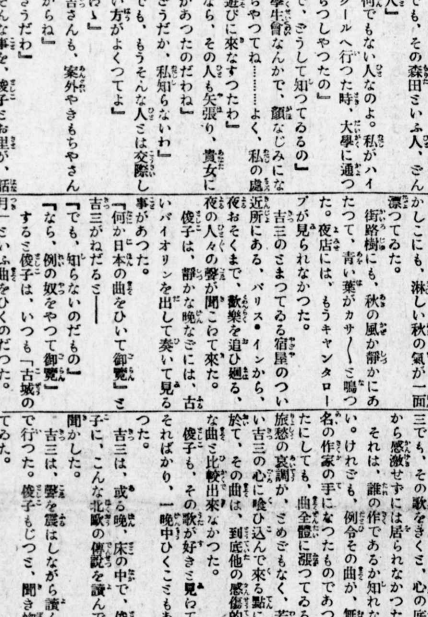 でも、その森田といふ人、どん
人』
何でもない人なのよ。私がハイ
クールへ行つた時、大學に通つ
らつしやつたの』
で、どうして知つてゐるの』
學生會なんかで、顔なじみにな
らやつてね………よく、私の處
遊びに來なすつたわ』
なら、その人も矢張り、貴女に
があつたのだわね』
だか、私知らないわ』
でも、もうそんな人とは交際し
い方がよくつてよ』
わゝ』
吉さんも、案外やきもちやさん
からね』
さうだわ』
そんな事を、俊子とお里が、話
かしこにも、淋しい秋の氣が一面
漂つてゐた。
街路樹にも、秋の風が靜かにあ
たつて、青い葉がカサ〱と鳴つ
た。夜店には、もうキヤンタロー
プが見られなかつた。
吉三のとまつてゐる宿屋のつい
近所にある、パリス・インから、
夜おそくまで、歡樂を追ひ廻る、
夜の人々の聲が聞こえて來た。
俊子は、靜かな晩などには、古
いバイオリンを出して奏いて見る
事があつた。
『何か日本の曲をひいて御覽』と
吉三がねだると——
『でも、知らないのだもの』
『なら、例の奴をやつて御覽』
すると俊子は、いつも「古城の
月」といふ曲をひくのだつた。
三でも、その歌をきくと、心の底
から感激せずには居られなかつた
それは、誰の作であるか知れな
い。けれども、例令その曲が、無
名の作家の手になつたものであつ
たにしても、曲全體に漲つてゐる
旅愁の哀調が、とめどもなく、若
い吉三の心に喰ひ込んで來る點に
於て、その曲は、到底他の感傷的
な曲と比較出來なかつた。
俊子も、その歌が好きと見えて
そればかり、一晩中ひくこともあ
つた。
吉三は、或る晩、床の中で、俊
子に、こんな北歐の傳説を讀んで
聞かした。
吉三は、聲を震はしながら讀ん
で行つた。俊子もじつと、聞き
てゐた。